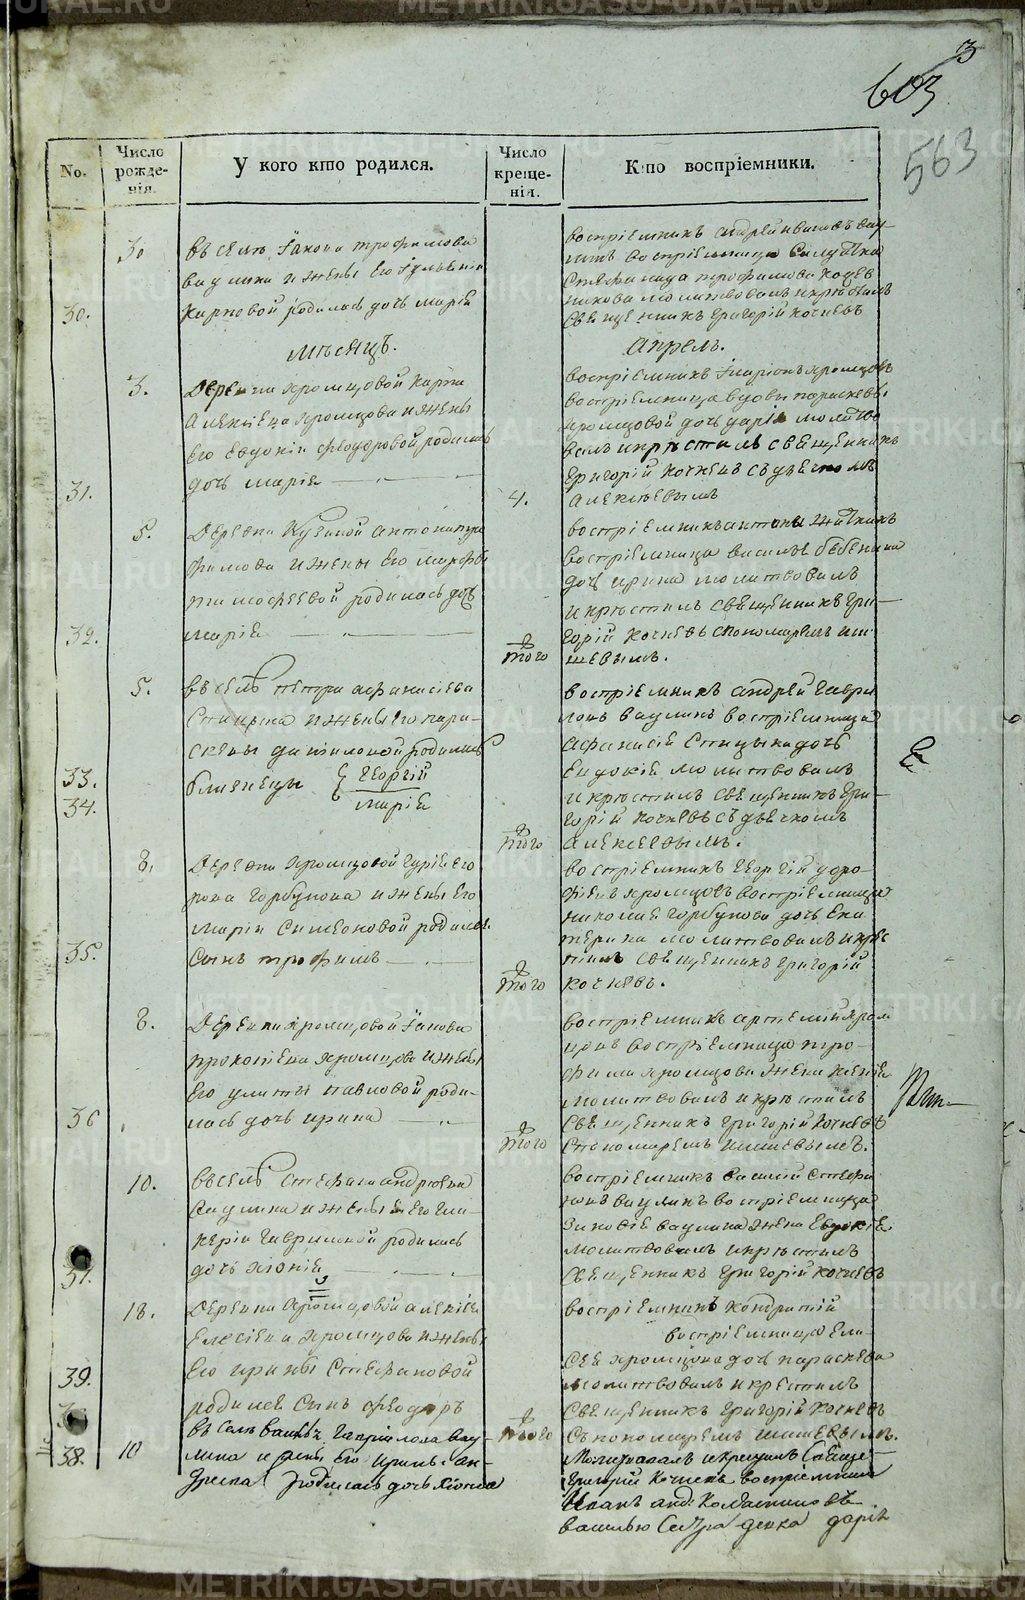 3
603
563
No.
Число рожде-нія.
У кого кто родился.
Число креще-нія.
Кто воспріемники.
30
въ селѣ Іакова трофимова
ваулина и жены его Іульяніи
30.
карповой родилась дочь марія
воспріемникъ андрей ивановъ вау-
линъ воспріемница
трофимова
молитвовалъ и крѣстилъ
священникъ григорій кочневъ
мѣсяцъ.
Апрель.
3.
Деревни хромцовой карпа
алексіева хромцова и жены
его евдокіи феодоровой родилась
31.
дочь марія
4.
воспріемникъ Іларіонъ хромцовъ
воспріемница вдовы параскевы
хромцовой дочь дарія молитво
валъ и крѣстилъ священникъ
григорій кочневъ съ дьячкомъ
алексѣевымъ
5.
Деревни антона
и жены его марфы
тимофеевой родилась дочь
32.
марія
того
воспріемникъ антонъ
воспріемница
дочь ирина молитвовалъ
и крѣстилъ священникъ гри-
горій кочневъ с пономаремъ ши-
шевымъ.
5.
въ селѣ петра афанасіева
спицына и жены его пара-
скевы даниловой родились
33.
близнецы { георгій
34.
марія
того
воспріемникъ андрей гаври
ловъ ваулинъ воспріемница
афанасія спицына дочь
евдокія молитвовалъ
и крѣстилъ священникъ гри-
горій кочневъ съ дьячкомъ
алексеевымъ.
8.
Деревни хромцовой гурія его
рова горбунова и жены его
маріи симеоновой родился
35.
сынъ трофимъ
того
воспріемникъ георгій доро-
феевъ хромцовъ воспріемница
николая горбунова дочь ека
терина молитвовалъ и крѣс
тилъ священникъ григорій
кочневъ.
8.
Деревни хромцовой Іакова
прокопіева хромцова и жены
его улиты павловой роди-
36
лась дочь ирина
того
воспріемникъ артемій хром
цовъ воспріемница тро-
фима хромцова жена ксенія
молитвовалъ и крѣстилъ
священникъ григорій кочневъ
с пономаремъ шишевымъ.
10.
въ селѣ стефана андреева
ваулина и жены его гли-
керіи гавриловой родилась
дочь хіонія
воспріемникъ василій стефа
новъ ваулинъ воспріемница
зиновія ваулина жена евдокія
молитвовалъ и крѣстилъ
священникъ григорій кочневъ
18.
Деревни хромцовой алексія
елесіева хромцова и жены
39.
его ирины стефановой
родился сынъ феодоръ
того
воспріемникъ кондратій
воспріемница ели-
сея хромцова дочь параскева
молитвовалъ и крѣстилъ
священникъ григорій кочневъ
съ пономаремъ шишевымъ.
38.
10
въ селѣ гаврилова вау-
лина и жены его ирины ан-
дреева родилась дочь хіонія
молитвовалъ и крестилъ священ
григорій кочневъ воспріемники
Иванъ
сестра девка дарія